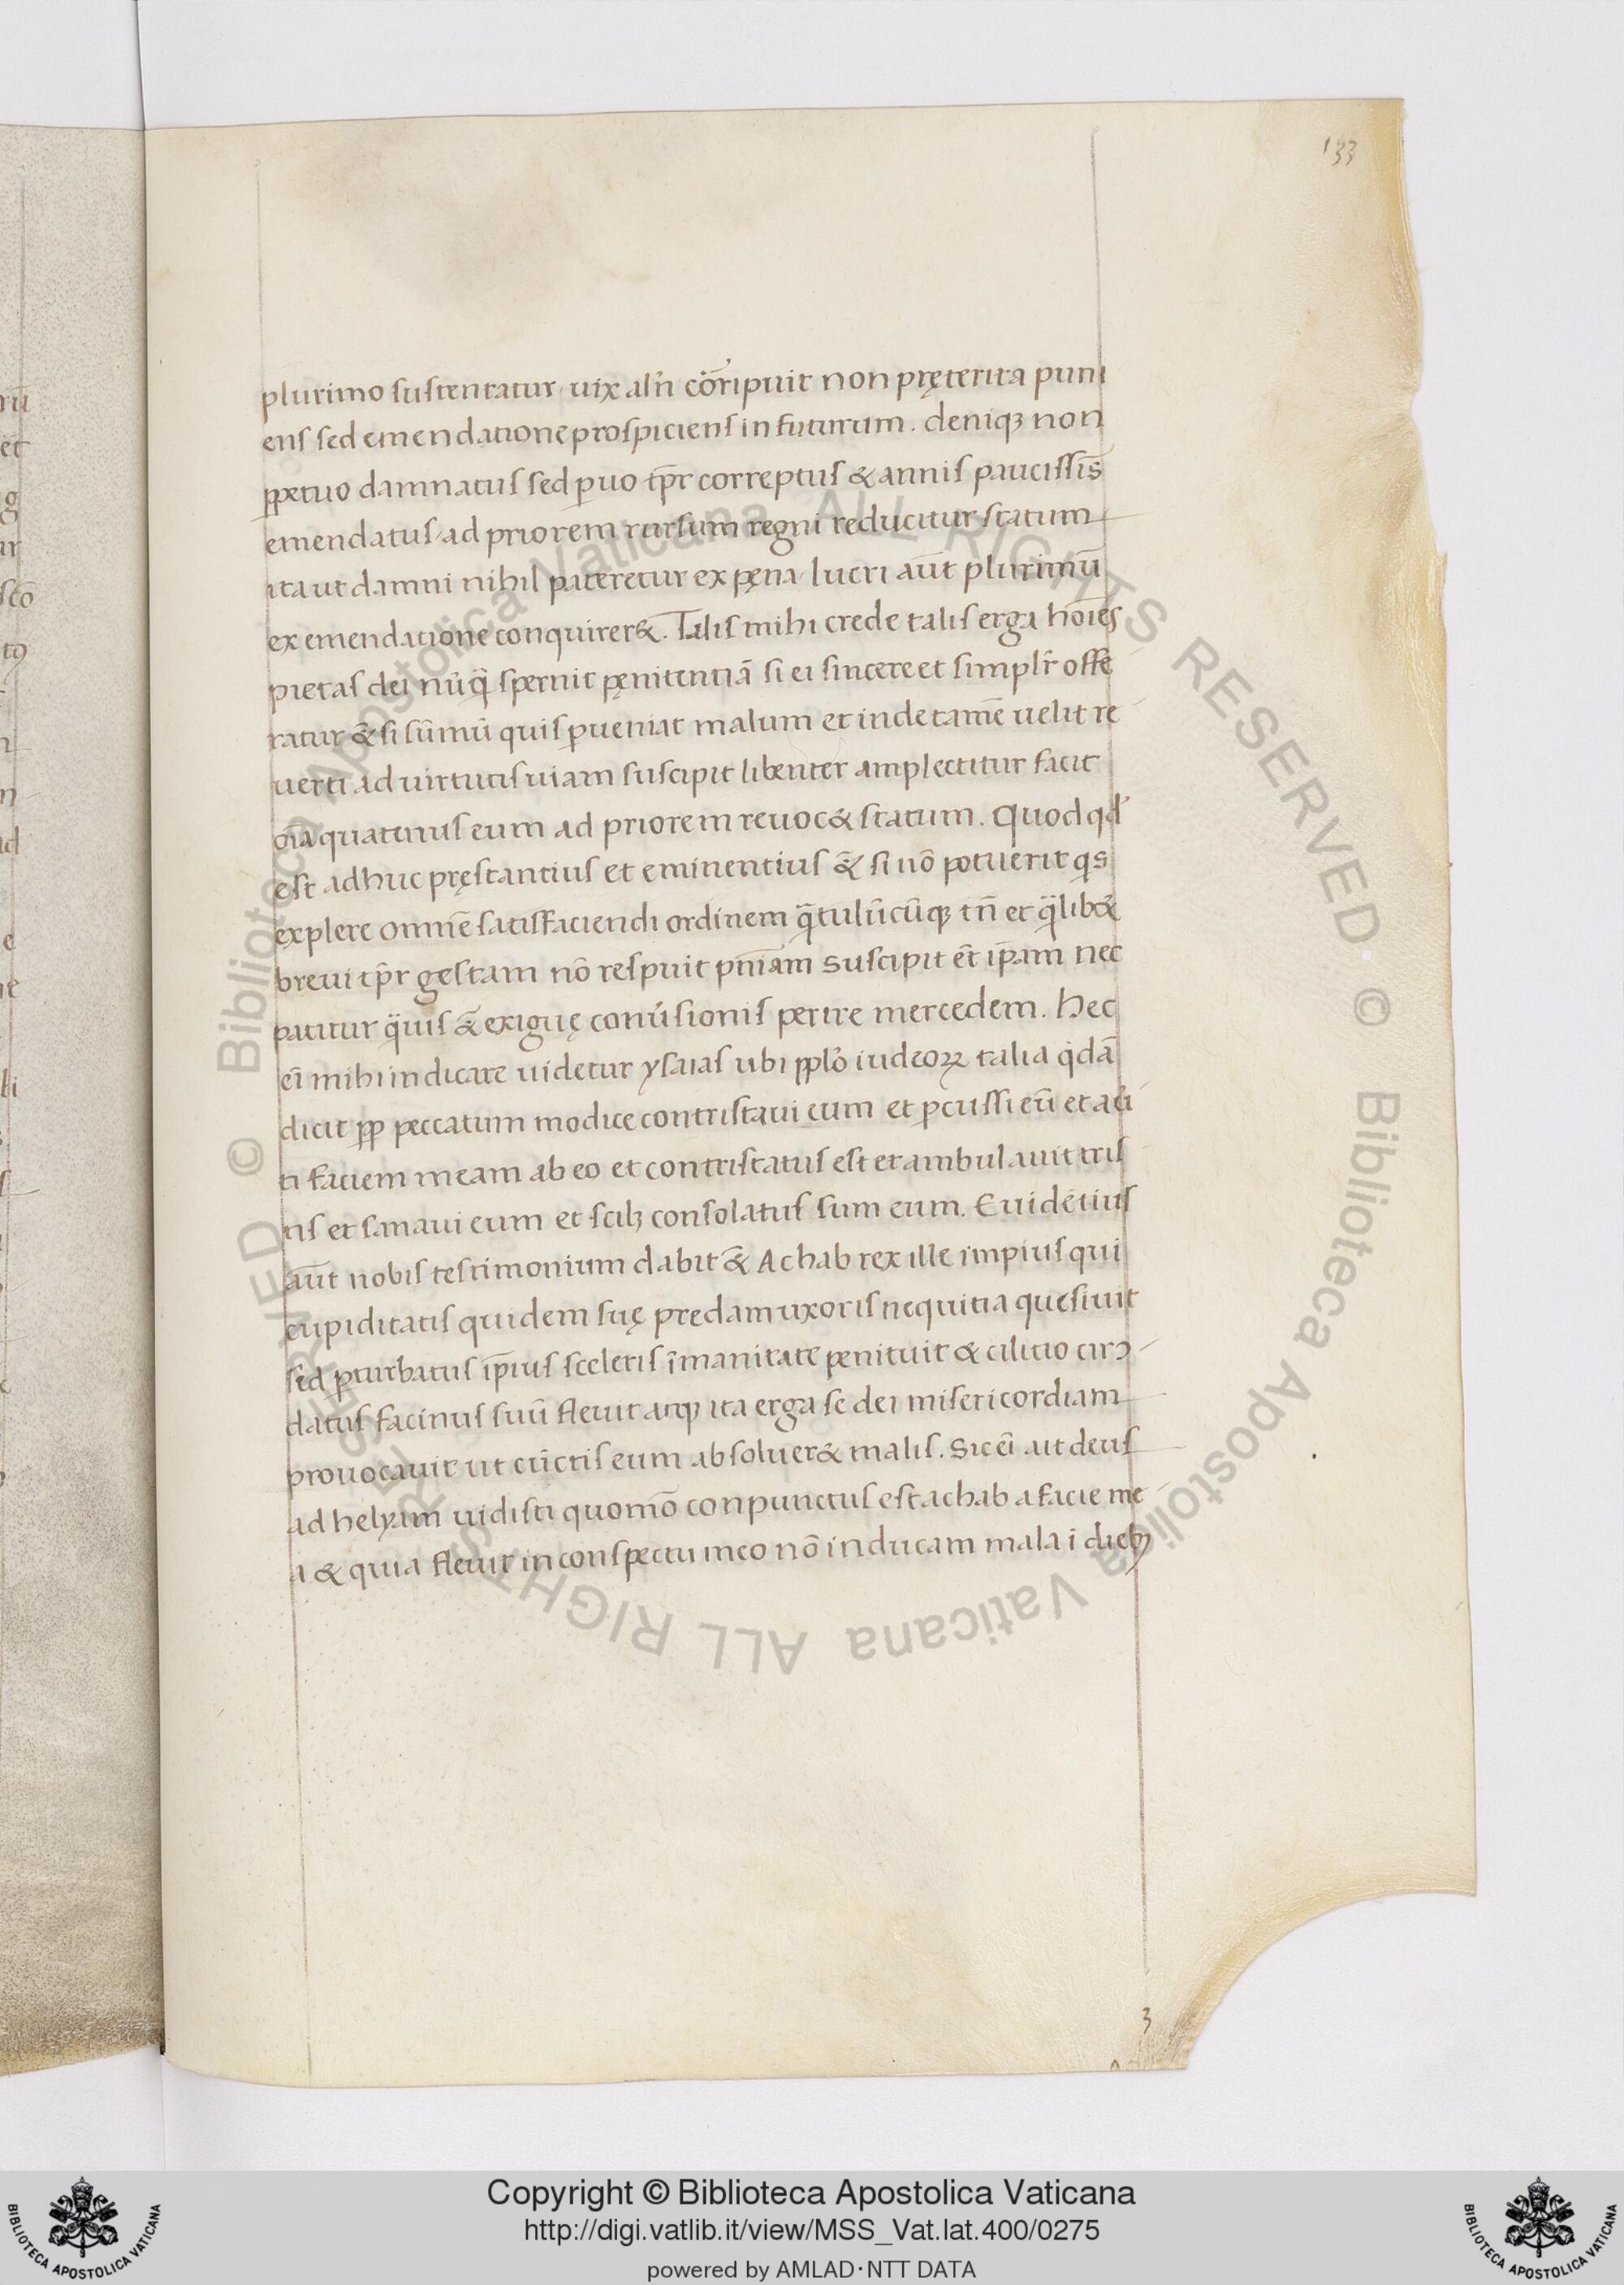 133
plurimo sustentatur uix alr̄n cōrripuit non pręterita puni
ens sed emendatione prospiciens in futurum. deniqꝫ non
ꝑpetuo damnatus sed ꝑuo tp̄r correptus & annis paucissīs
emendatus ad priorem rursum regni reducitur statum
ita ut damni nihil pateretur ex pęna lucri aūt plurimū
ex emendatione conquirer&. Talis mihi crede talis erga hoīes
pietas dei nūq̄ spernit pęnitentiā si ei sincere et simplr̄ offe
ratur &̄ si sūmū quis ꝑueniat malum et inde tamē uelit re
uerti ad uirtutis uiam suscipit libenter amplectitur facit
oīa quatinus eum ad priorem reuoc& statum. Quod qd̓
est adhuc pręstantius et eminentius &̄ si nō potuerit qs
explere omnē satisfaciendi ordinem q̄tulūcūqꝫ tn̄ et q̄lib&
breui tp̄r gestam nō respuit pn̄iam suscipit et̄ ip̄am nec
patitur q̄uis &̄ exiguę conūsionis perire mercedem. Hec
eī mihi indicare uidetur ysaias ubi ppl̓o iudeoꝝ talia q̓dā
dicit ꝓp peccatum modice contristaui eum et ꝑcussi eū et aūi
ti faciem meam ab eo et contristatus est et ambulauit tris
tis et sanaui eum et scilꝫ consolatus sum eum. Euidētius
aūt nobis testimonium dabit &̄ Achab rex ille impius qui
cupiditatis quidem suę predam uxoris nequitia quesiuit
sed ꝑturbatus ip̄ius sceleris īmanitate penituit & cilitio cirꝯ
datus facinus suū fleuit atqꝫ ita erga se dei misericordiam
prouocauit ut cūctis eum absoluer& malis. Sic eī ait deus
ad helyam uidisti quomō conpunctus est achab a facie me
a & quia fleuit in conspectu meo nō inducam mala ī diebꝰ
3
© Biblioteca Apostolica Vaticana ALL RIGHTS RESERVED
© Biblioteca Apostolica Vaticana ALL RIGHTS RESERVED
Copyright © Biblioteca Apostolica Vaticana
http://digi.vatlib.it/view/MSS_Vat.lat.400/0275
powered by AMLAD·NTT DATA
BIBLIOTECA APOSTOLICA VATICANA
BIBLIOTECA APOSTOLICA VATICANA